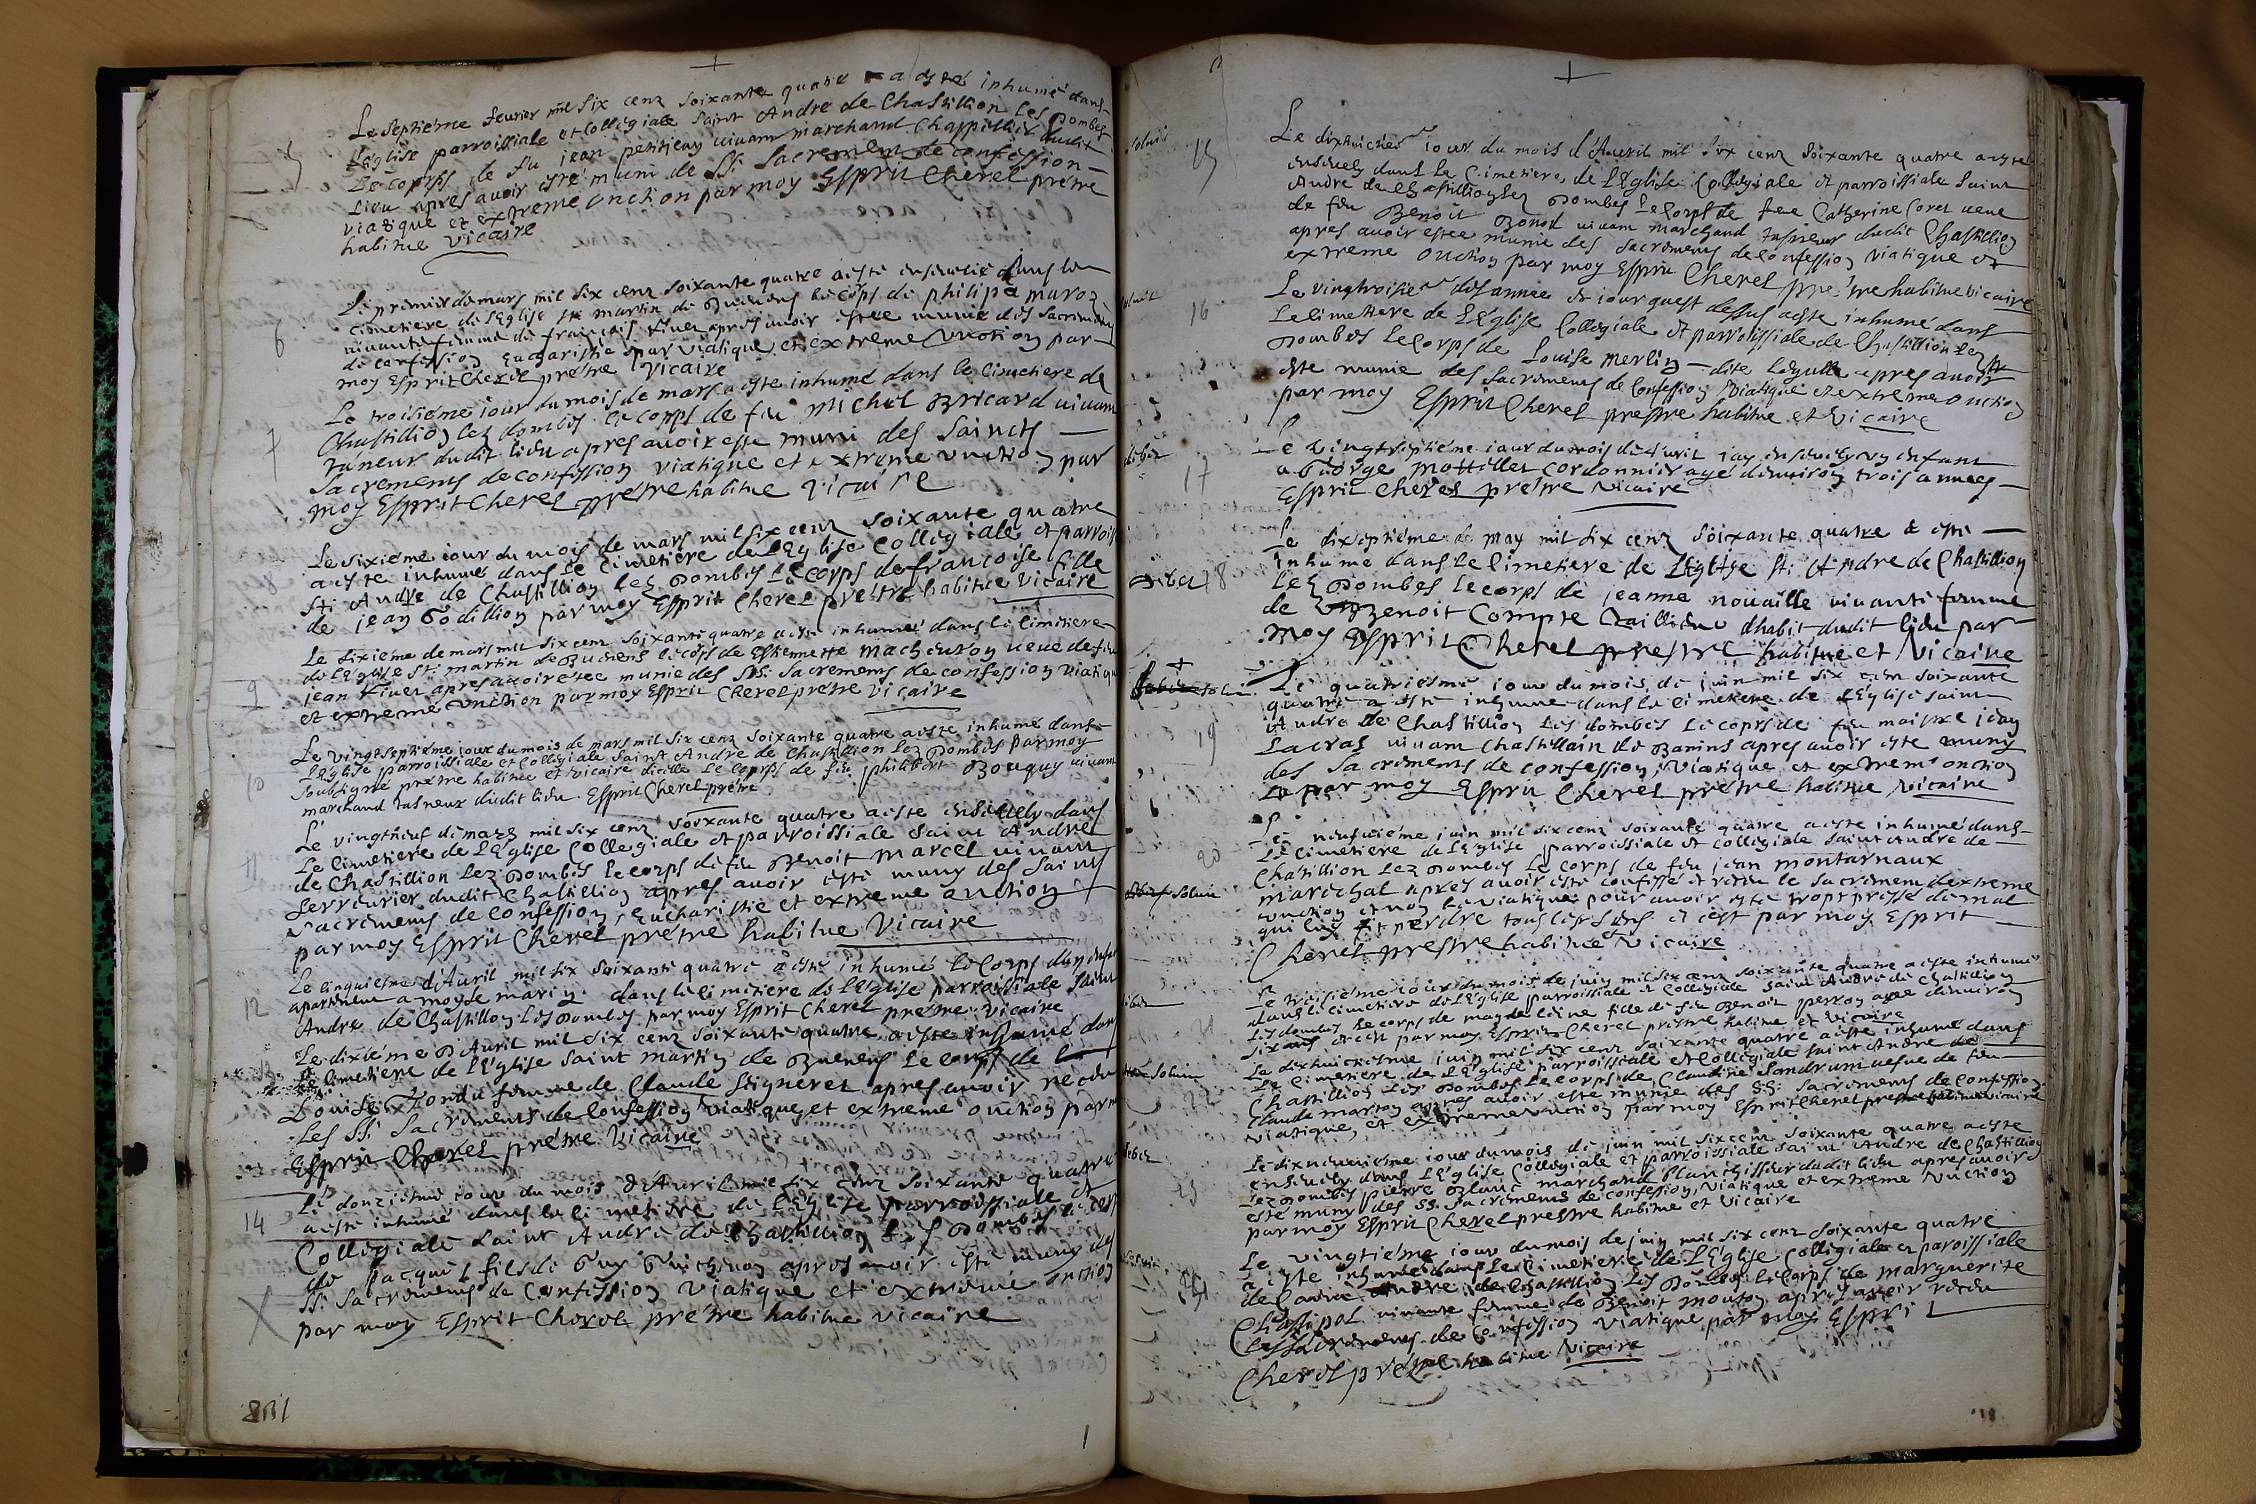 Le septieme feurier mil six cens soixante quatre a esté inhumé dans
l'eglise parroissiale et collegiale saint André de Chastillion les Dombes
Le corps de fu jean petitjean uiuant marchand Chappellier dudit
Lieu apres auoir esté muni de SS. Sacrement de confession
viatique et extreme onction par moy Esprit Cherel prétre
habitue vicaire
6
Le premier de mars mil six cens soixante quatre a esté enseuelie dans le
cimetiere de l'Eglise st martin de Buenens le corps de philipe
uiuante femme de françois apres auoir estee munie des sacremens
de confession eucharistie par viatique et extreme unction par
moy Esprit Cherel prétre vicaire
7
Le troisieme iour du mois de mars a este inhumé dans le cimetiere de
Chastillion lez dombes le corps de feu Michel Bricard uiuant
taneur dudit lieu apres auoir este muni des saincts
sacrements de confession viatique et extreme unction par
moy Esprit Cherel prétre habitue vicaire
Le sixieme iour du mois de mars mil six cens soixante quatre
a este inhumé dans le cimetiere de l'Eglise collegiale et parroi
St. André de Chastillion lez Dombes le corps de francoise fille
de jean Godillion par moy Esprit Cherel prestre habitue vicaire
9
Le sixieme de mars mil six cens soixante quatre a esté inhumeé dans le cimetiere
de l'Eglise st. martin de Buenens le corps de Estiennette ueue de feu
jean apres auoir estee munie des SS. Sacrements de confession viatique
et extreme unction par moy Esprit Cherel prétre vicaire
10
Le vingt septieme iour du mois de mars mil six cens soixante quatre a este inhumé dans
l'Eglise parroissiale et collegiale saint André de Chastillion lez Dombes par moy
soubsigné prétre habitue et vicaire dicelle le corps de feu philibert Bouquy uiuant
marchand tasneur dudit lieu Esprit Cherel prétre
11
Le vingtneuf de mars mil six cens soixante quatre a este enseuely dans
Le cimetiere de l'Eglise collegiale et parroissiale saint André
de Chastillion lez Dombes le corps de feu Benoit Marcel uiuant
serrurier dudit Chastillion apres auoir esté muny des sains
sacremens de confession, eucharistie et extreme onction
par moy Esprit Cherel prétre habitue vicaire
12
Le cinquieme d'Auril mil six soixante quatre a este inhumé le corps d'un enfant
apartenant a moyse marin dans le cimetiere de l'Eglise parroissiale saint
André de Chastillon Les Dombes par moy Esprit Cherel prétre vicaire
Le dixiéme d'Auril mil six cens soixante quatre a este inhumé dans
le cimetiere de l'Eglise saint martin de Buenens le corps de
Louise femme de Claude apres auoir receu
Les SS. Sacrements de confession viatique et extreme onction par
Esprit Cherel prétre vicaire
14
Le douzieme iour du mois d'Auril mil six cens soixante quatre
a esté inhumé dans le cimetiere de l'Eglise parroissiale et
Collegiale saint André de Chastillion Les Dombes le corps
de jacques fils de Guy Guichenon apres auoir esté muny des
SS. Sacremens de confession viatique et extreme onction
par moy Esprit Cherel prétre habitue vicaire
soluit
15
Le dixhuictieme iour du mois d'Auril mil six cens soixante quatre a este
enseueli dans le Cimetiere de l'Eglise Collegiale et parroissiale saint
André de Chastillion lez Dombes le corps de feue Catherine Coret ueue
de feu Benoit Bonod uiuant marchand tasneur dudit Chastillion
apres auoir estee munie des sacremens de confession viatique et
extreme onction par moy Esprit Cherel prétre habitue vicaire
16
Le vingtroisie desannee et iour quest dessus a este inhumé dans
le cimetiere de l'Eglise Collegiale et parroissiale de Chastillion lez
Dombes le corps de Louise merlin dite apres auoir
este munie des sacremens de confession viatique et extreme onction
par moy Esprit Cherel prestre habitue et vicaire
debet
17
Le vingtseptieme iour du mois d'Auril iay enseuely un enfant
a George cordonnier agé denuiron trois annees
Esprit Cherel prétre vicaire
debet 18
Le dixseptieme de may mil six cens soixante quatre a esté
inhumé dans le cimetiere de l'Eglise st. André de Chastillion
lez Dombes le corps de jeanne nouaille uiuante femme
de Benoit Compte tailleur dhabit dudit lieu par
moy Esprit Cherel prestre habitue et vicaire
soluit
19
Le quatriesme iour du mois de juin mil six cens soixante
quatre a esté inhumé dans le cimetiere de l'Eglise saint
André de Chastillion les dombes le corps de feu maistre jean
Lacras uiuant Chastellain de Banins apres auoir este muny
des sacrements de confession, viatique et extrem onction
par moy Esprit Cherel prétre habitue vicaire
20
soluit
Le neufuieme juin mil six cens soixante quatre a este inhumé dans
Le cimetiere de l'Eglise parroissiale et collegiale saint André de
Chastillion lez Dombes le corps de feu jean montarnaux
maréchal apres auoir esté confessé et receu le sacrement dextreme
unction et non le viatique pour auoir esté trop pressé de mal
qui luy fit perdre tous les sens et cest par moy Esprit
Cherel prestre habitue et vicaire
debet
21
Le troisieme iour du mois de juin mil six cens soixante quatre a este inhumé
dans le cimetiere de l'Eglise parroissiale et collegiale saint André de Chastillion
les dombes le corps de magdeleine fille de feu Benoit perron agee denuiron
six ans et cest par moy Esprit Cherel prestre habitue et vicaire
soluit
22
Le dixhuictiesme juin mil six cens soixante quatre a este inhumé dans
Le cimetiere de l'Eglise parroissiale et collegiale saint André de
Chastillion les Dombes le corps de Claudine uefue de feu
Claude marion apres auoir este munie des SS. Sacremens de confession
viatique, et extreme unction par moy Esprit Cherel prestre habitue vicaire
debet
23
Le dixneuuieme iour du mois de juin mil six cens soixante quatre a este
enseuely dans l'Eglise collegiale et parroissiale saint André de Chastillion
lez Dombes pierre Blanc marchand blanchisseur dudit lieu apres auoir
esté muny des SS. Sacremens de confession, viatique et extreme unction
par moy Esprit Cherel prestre habitue et vicaire
soluit
24
Le vingtieme iour du mois de juin mil six cens soixante quatre
a este inhumé dans le cimetiere de l'Eglise collegiale et paroissiale
de saint André de Chastillion les Dombes le corps de marguerite
Chassipol uiuante femme de Benoit mouton apres auoir receu
les sacremens de confession viatique par moy Esprit
Cherel prétre habitue vicaire